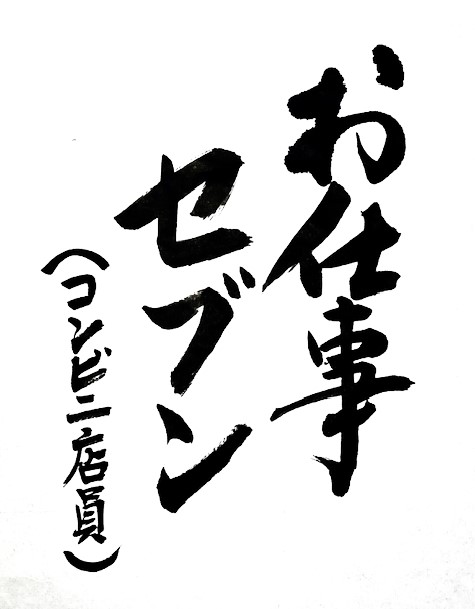 お仕事
セブン
（コンビニ店員）